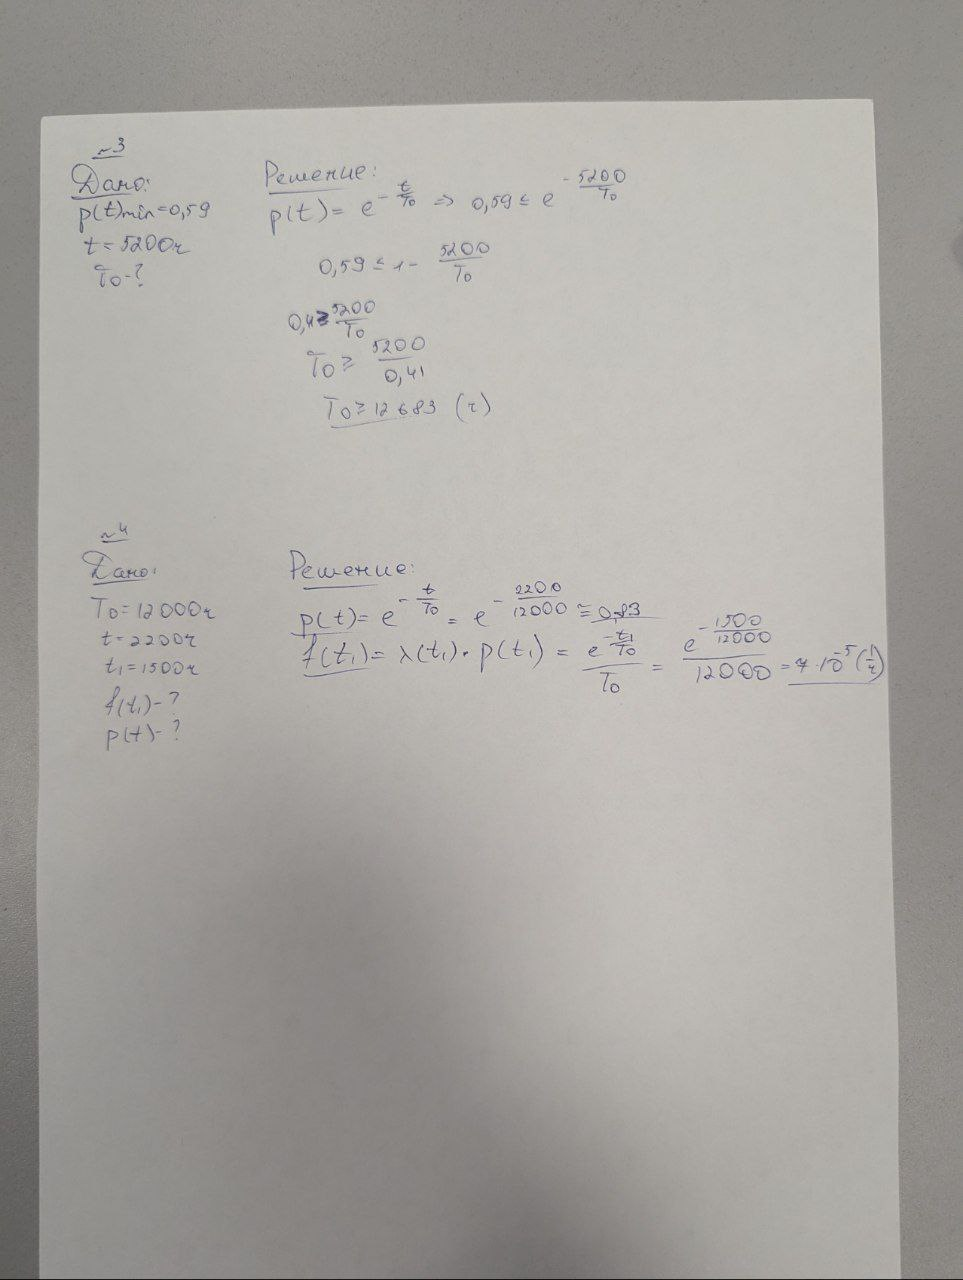 ~3
Дано:
p(t)min=0,59
t=5200ч
T₀-?
Решение:
p(t)= e^(-t/T₀) ⇒ 0,59 ≤ e^(-5200/T₀)
0,59 ≤ 1- 5200/T₀
0,4≥ 5200/T₀
T₀ ≥ 5200/0,41
T₀ ≥ 12683 (ч)
~4
Дано:
T₀=12000ч
t=2200ч
t₁=1500ч
f(t₁)-?
p(t)-?
Решение:
p(t)= e^(-t/T₀) = e^(-2200/12000) ≅ 0,83
f(t₁)= λ(t₁)·p(t₁) = e^(-t₁/T₀)/T₀ = e^(-1500/12000)/12000 = 7·10⁻⁵ (1/ч)